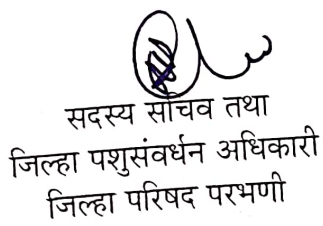 सदस्य सचिव तथा
जिल्हा पशुसंवर्धन अधिकारी
जिल्हा परिषद परभणी